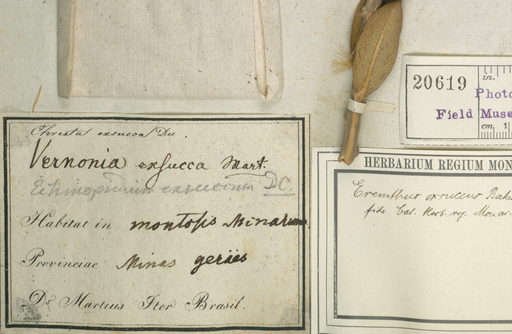 20619
Photo
Field Muse
cm
1
Chresta exsucca DC.
Vernonia exsucca Mart.
DC.
Habitat in montosis Minarum
Provinciae Minas geraës
Dr Martius Iter Brasil.
HERBARIUM REGIUM MON
Eremthus exsuccus Bake
fide Cat. Herb. reg. Monac.